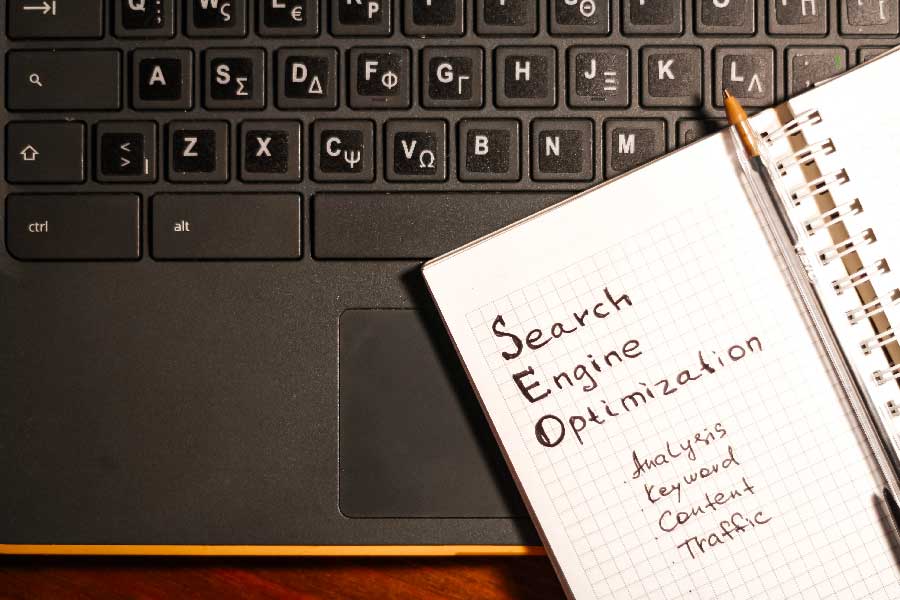 Q ;
W ς
E €
R P
A
S Σ
D Δ
F Φ
G Γ
H
J Ξ
K
L Λ
< >
Z
X
C Ψ
V Ω
B
N
M
ctrl
alt
Search
Engine
Optimization
Analysis
Keyword
Content
Traffic